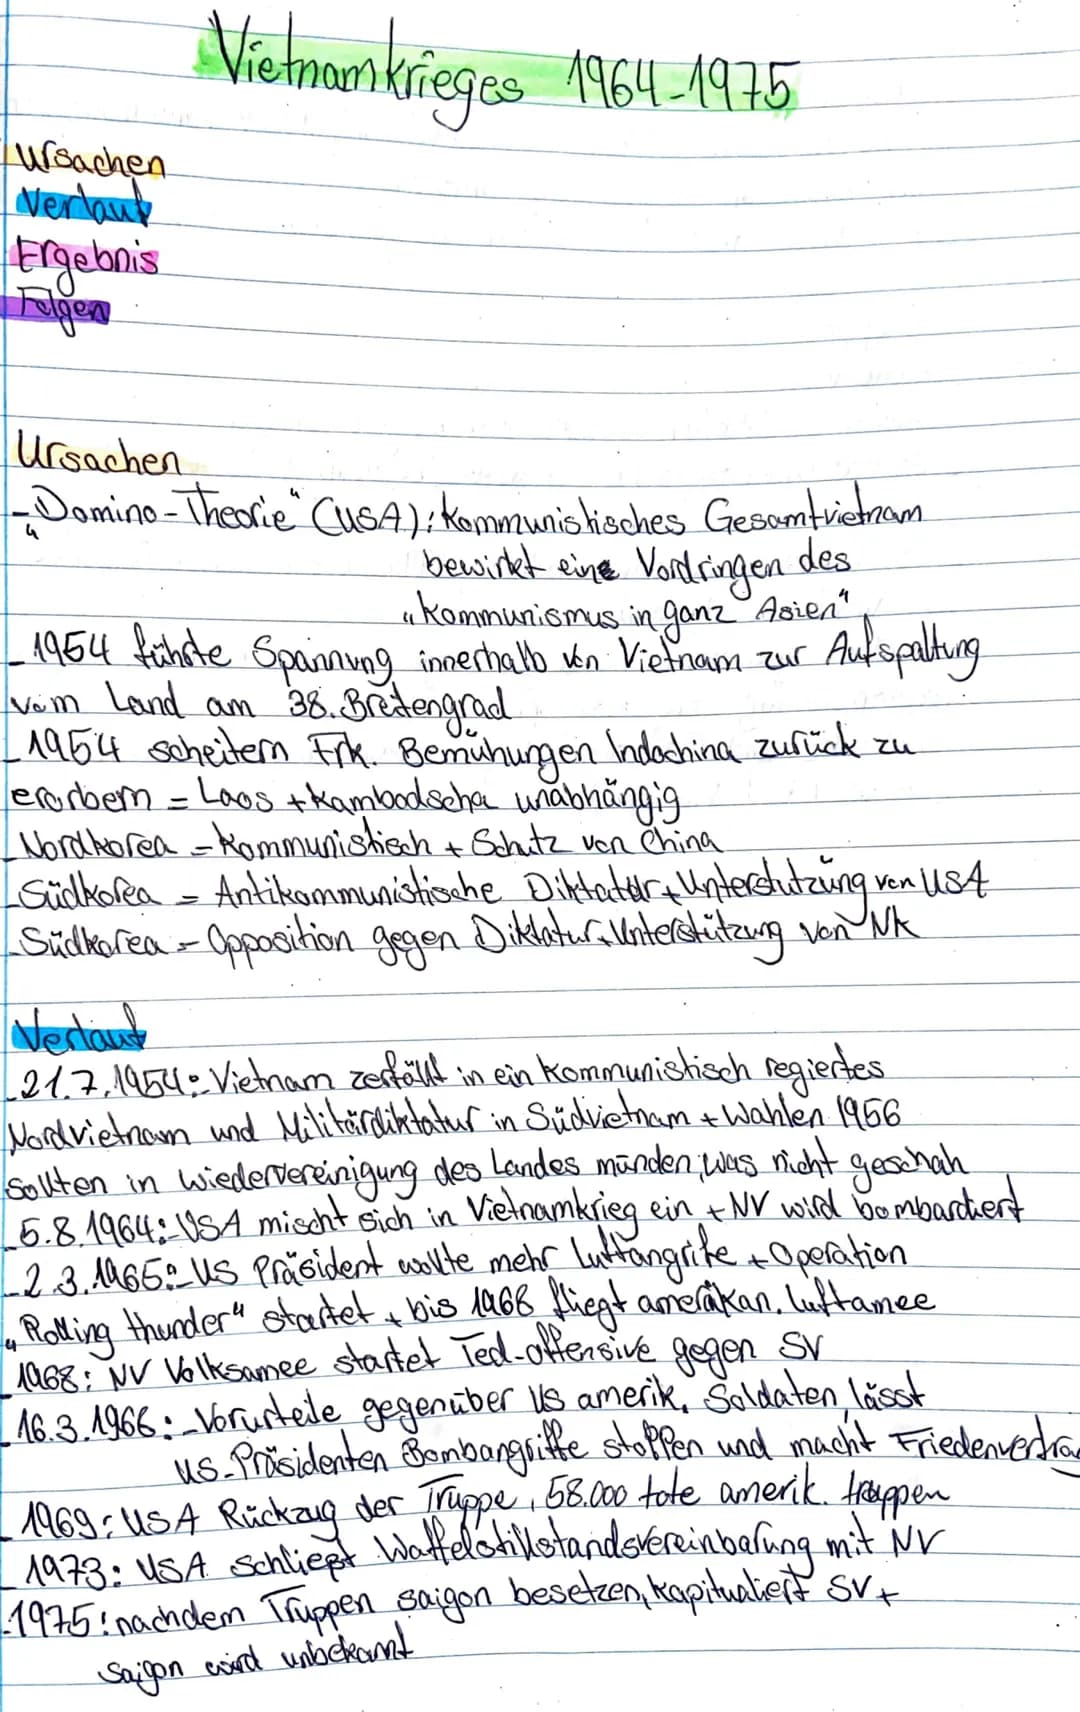 Vietnamkrieges 1964-1975
Ursachen
Verlauf
Ergebnis
Folgen
Ursachen
- „Domino-Theorie“ (USA): Kommunistisches Gesamtvietnam
bewirkt eine Vordringen des
„Kommunismus in ganz Asien“
- 1954 führte Spannung innerhalb von Vietnam zur Aufspaltung
vom Land am 38. Breitengrad
- 1954 scheitern Frk. Bemühungen Indochina zurück zu
erorbern = Laos + Kambodscha unabhängig
- Nordkorea = Kommunistisch + Schutz von China
- Südkorea = Antikommunistische Diktatur + Unterstützung von USA
- Südkorea = Opposition gegen Diktatur + Unterstützung von NK
Verlauf
- 21.7.1954: Vietnam zerfällt in ein kommunistisch regiertes
Nordvietnam und Militärdiktatur in Südvietnam + Wahlen 1956
sollten in wiedervereinigung des Landes münden, was nicht geschah
- 5.8.1964: USA mischt sich in Vietnamkrieg ein + NV wird bombardiert
- 2.3.1965: US Präsident wollte mehr Luftangrife + Operation
„Rolling thunder“ startet + bis 1968 fliegt amerikan. Luftamee
- 1968: NV Volksamee startet Ted-offensive gegen SV
- 16.3.1968: Vorurteile gegenüber US amerik. Soldaten, lässt
US-Präsidenten Bombangriffe stoppen und macht Friedenvertrag
- 1969: USA Rückzug der Truppe, 58.000 tote amerik. truppen
- 1973: USA schließt Waffelstillstandsvereinbarung mit NV
- 1975: nachdem Truppen saigon besetzen, kapitualiert SV +
Saigon wird unbekannt